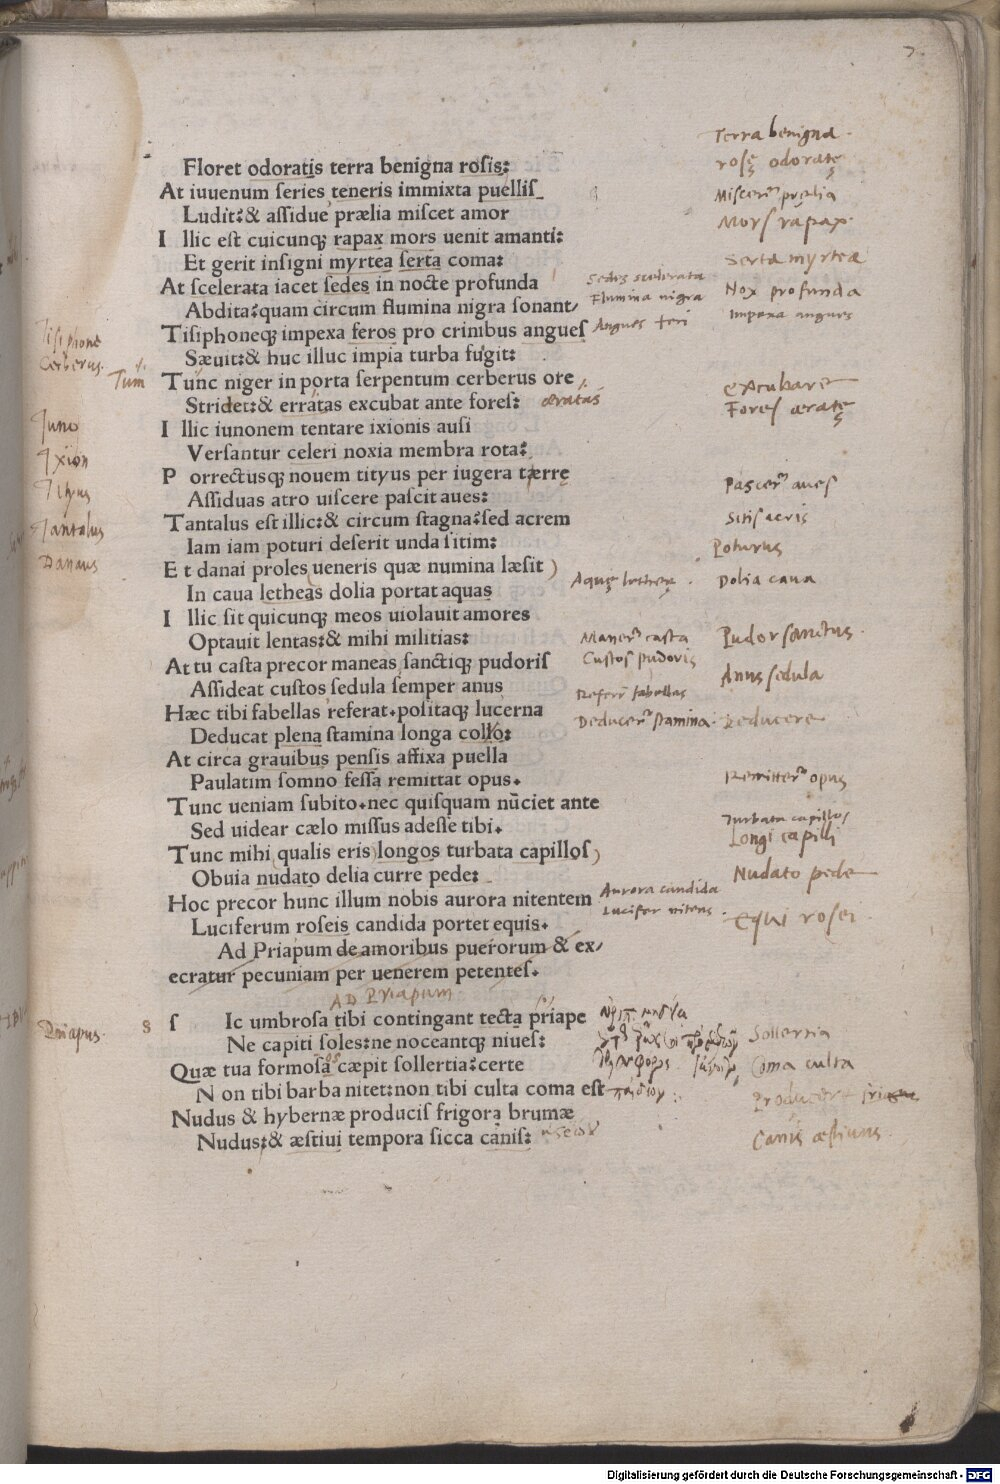 7
Floret odoratis terra benigna rosis:
At iuuenum series teneris immixta puellis
Ludit:& assidue prælia miscet amor
I llic est cuicunq; rapax mors uenit amanti:
Et gerit insigni myrtea serta coma:
At scelerata iacet sedes in nocte profunda
Abdita:quam circum flumina nigra sonant/
Tisiphoneq; impexa feros pro crinibus angues
Sæuit:& huc illuc impia turba fugit:
Tunc niger in porta serpentum cerberus ore
Stridet:& erratas excubat ante fores: æratas
I llic iunonem tentare ixionis ausi
Versantur celeri noxia membra rota:
P orrectusq; nouem tityus per iugera tærrę
Assiduas atro uiscere pascit aues:
Tantalus est illic:& circum stagna:sed acrem
Iam iam poturi deserit unda sitim:
E t danai proles ueneris quæ numina læsit
In caua letheas dolia portat aquas
I llic sit quicunq; meos uiolauit amores
Optauit lentas:& mihi militias:
At tu casta precor maneas sanctiq; pudoris
Assideat custos sedula semper anus
Hæc tibi fabellas referat.positaq; lucerna
Deducat plena stamina longa collo:
At circa grauibus pensis affixa puella
Paulatim somno fessa remittat opus.
Tunc ueniam subito.nec quisquam nūciet ante
Sed uidear cælo missus adesse tibi.
Tunc mihi qualis eris longos turbata capillos
Obuia nudato delia curre pede:
Hoc precor hunc illum nobis aurora nitentem
Luciferum roseis candida portet equis.
Ad Priapum de amoribus puerorum & ex/
ecratur pecuniam per uenerem petentes.
AD Priapum
s Ic umbrosa tibi contingant tecta priape
Ne capiti soles:ne noceantq; niues:
Quæ tua formosa cæpit sollertia:certe
N on tibi barba nitet:non tibi culta coma est
Nudus & hybernæ producis frigora brumæ
Nudus:& æstiui tempora sicca canis:
Tisiphone
Cerberus.
Tum
Juno
Ixion
Tityus
Tantalus
Danaus
Priapus.
s
Terra benigna.
rosę odoratę
Miscer͂ prælia
Mors rapax.
Serta myrtea
Sedes scelerata
Flumina nigra
Nox profunda
Impexa angues
Angues feri
excubare
Fores æratę
Pascer͂ aues
Sitis acris
Poturus
Aquę letheę.
Dolia caua
Maner͂ casta
Custos pudoris
Pudor sanctus.
Anus sedula
Referr͂ fabellas
Deducer͂ stamina.
Deducere
Remitter͂ opus
Turbata capillos
Longi capilli
Nudato pede
Aurora candida
Lucifer nitens.
Equi rosei.
Sollertia
Coma culta
Producere
Canis æstiuus.
Digitalisierung gefördert durch die Deutsche Forschungsgemeinschaft - DFG